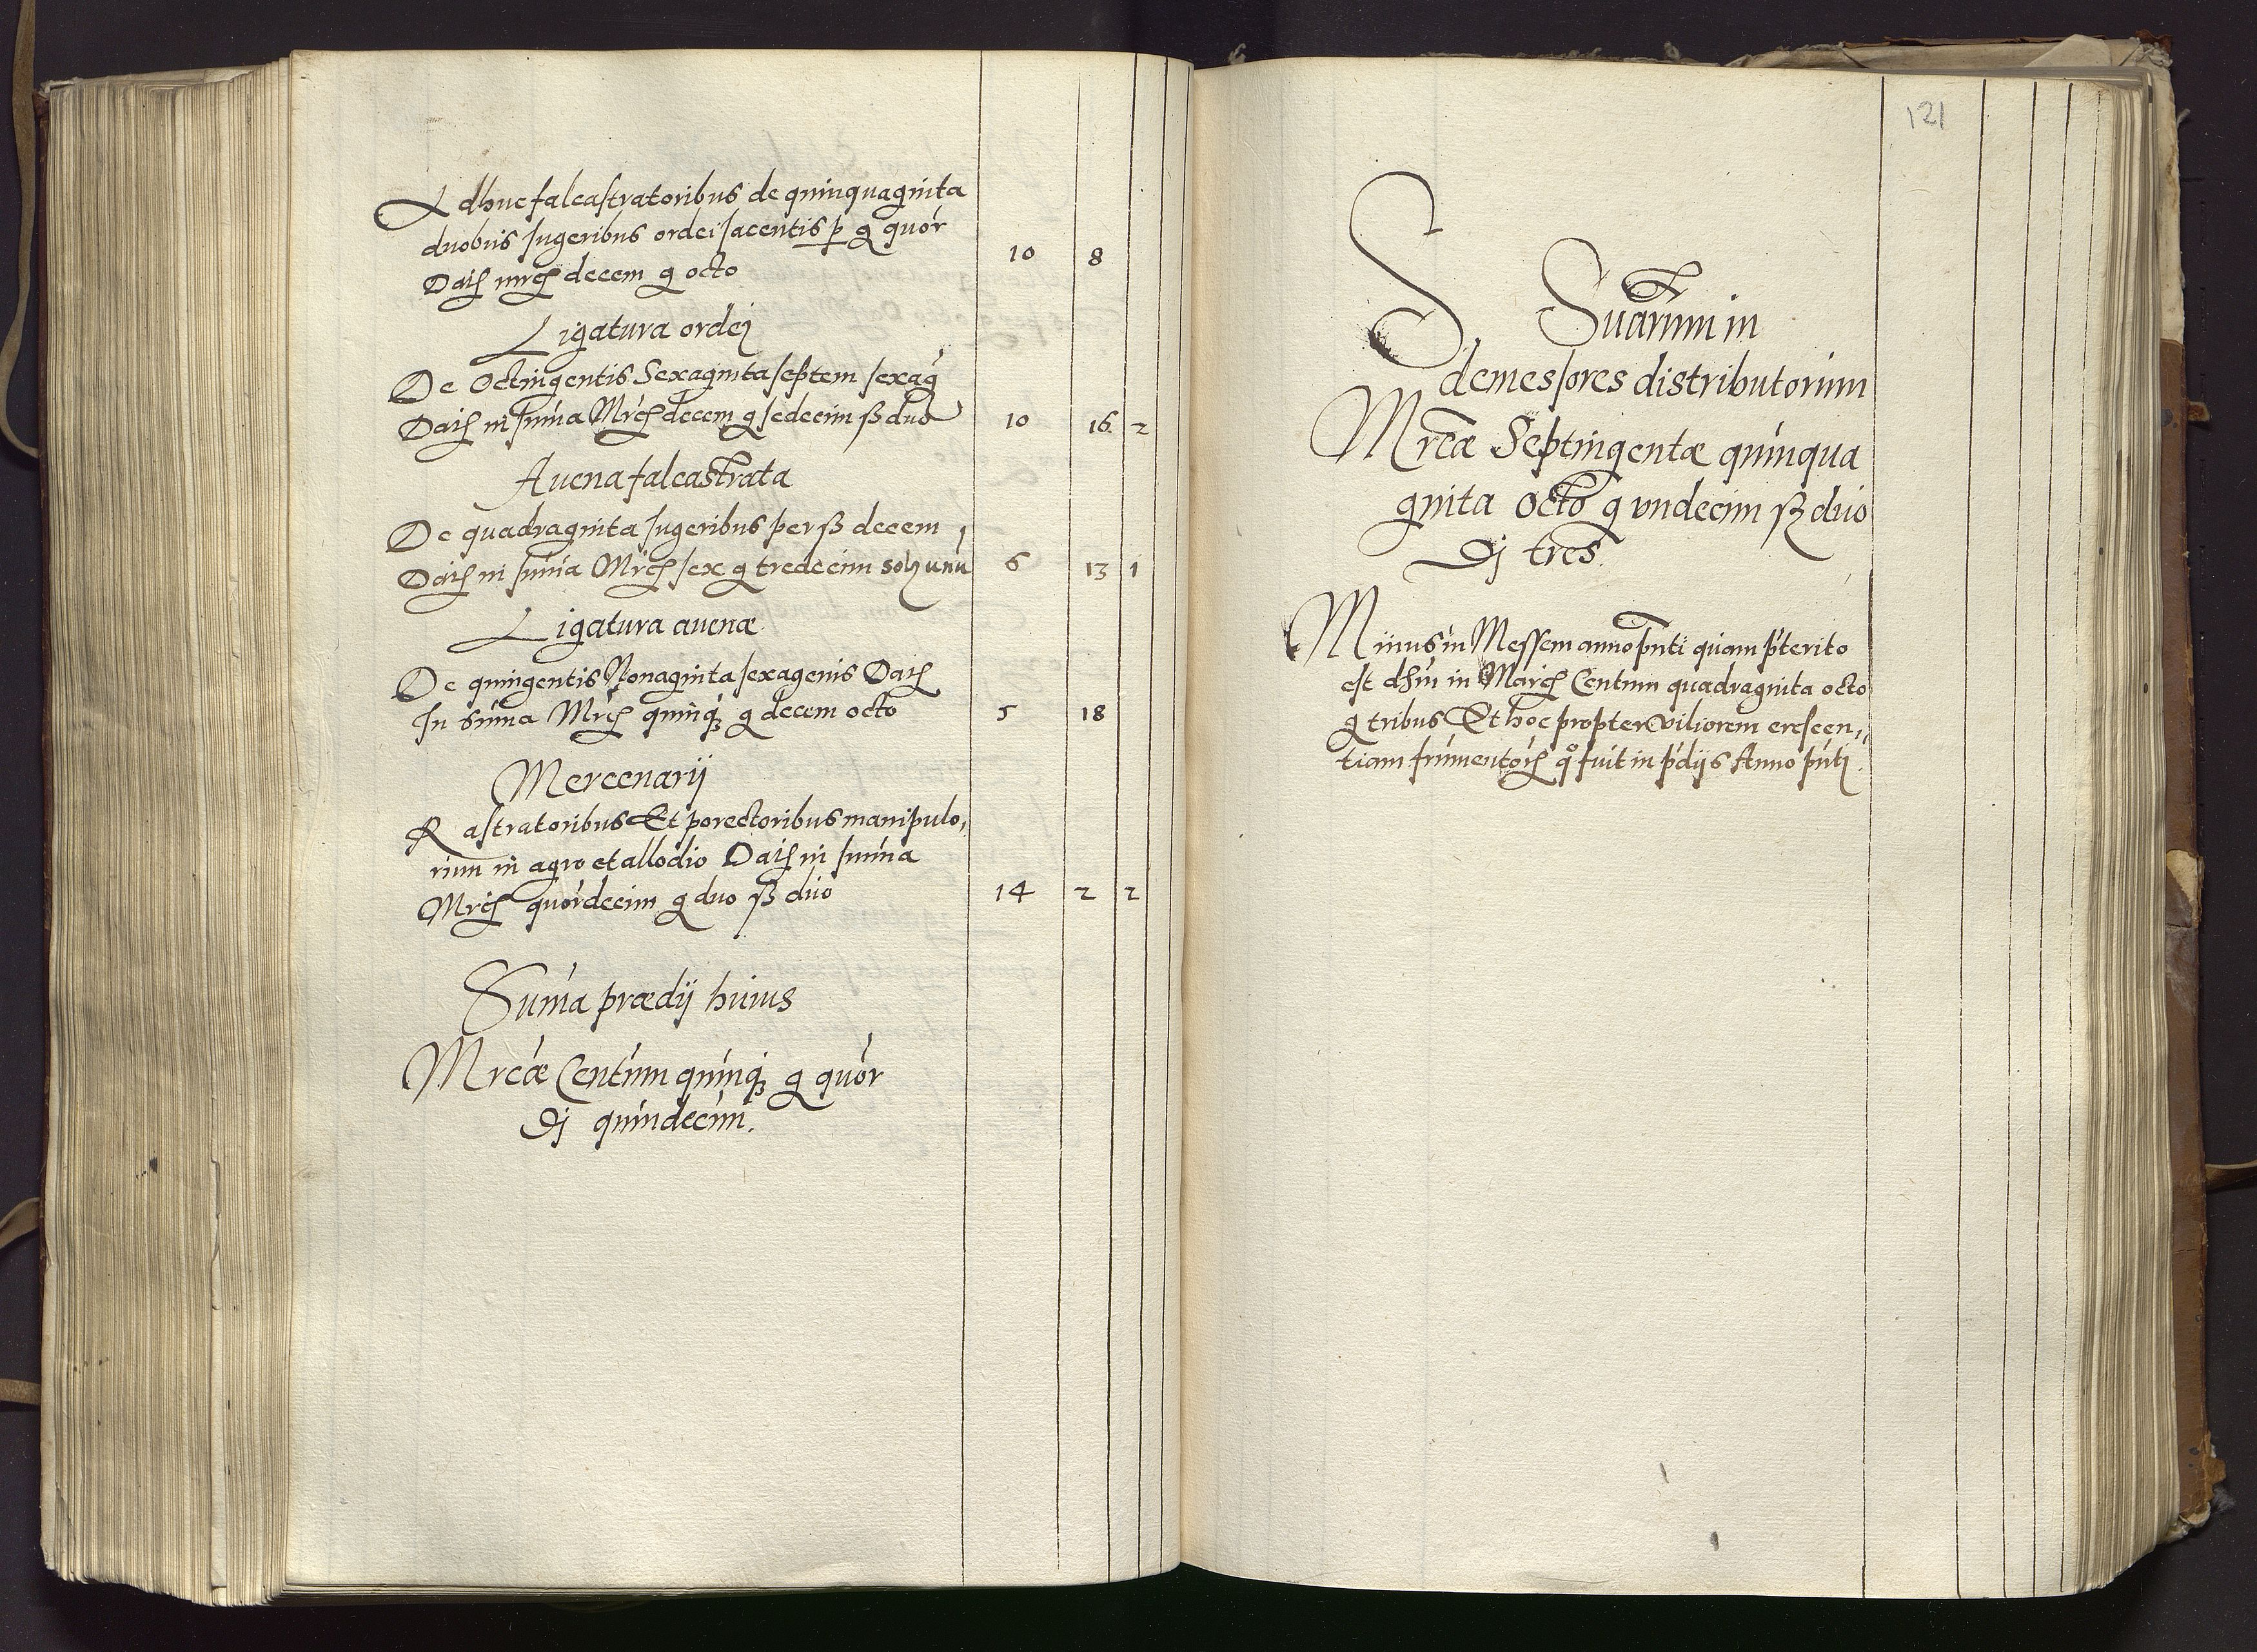 Adhuc falcastratoribus de quinquaginta
duobus Iugeribus ordei Iacentis p g quor
Dat mrc decem g octo
10 8
Ligatura ordej
De Octingentis Sexaginta septem sexag
Dat in suma Mrc decem g sedecim ß duo
10 16 2
Auena falcastrata
De quadraginta Iugeribus per ß decem
Dat in suma Mrc sex g tredecim sol unu
6 13 1
Ligatura auenæ
De quingentis Nonaginta sexagenis Dat
In suma Mrc quinq g decem octo
5 18
Mercenarij
Rastratoribus Et porectoribus manipulo,
rum in agro et allodio Dat in suma
Mrc quordecim g duo ß duo
14 2 2
Suma prædij huius
Mrcæ Centum quinq g quor
Dj quindecim.
121
S. Suarum in
demessores distributorum
Mrcæ Septingentæ quinqua
ginta Octo g vndecim ß duo
Dj tres
Minus in Messem anno pnti quam pterito
est dsm in Marc Centum quadraginta octo
g tribus Et hoc propter viliorem crescen,,
tiam frumentor q fuit in pdijs Anno pntj.